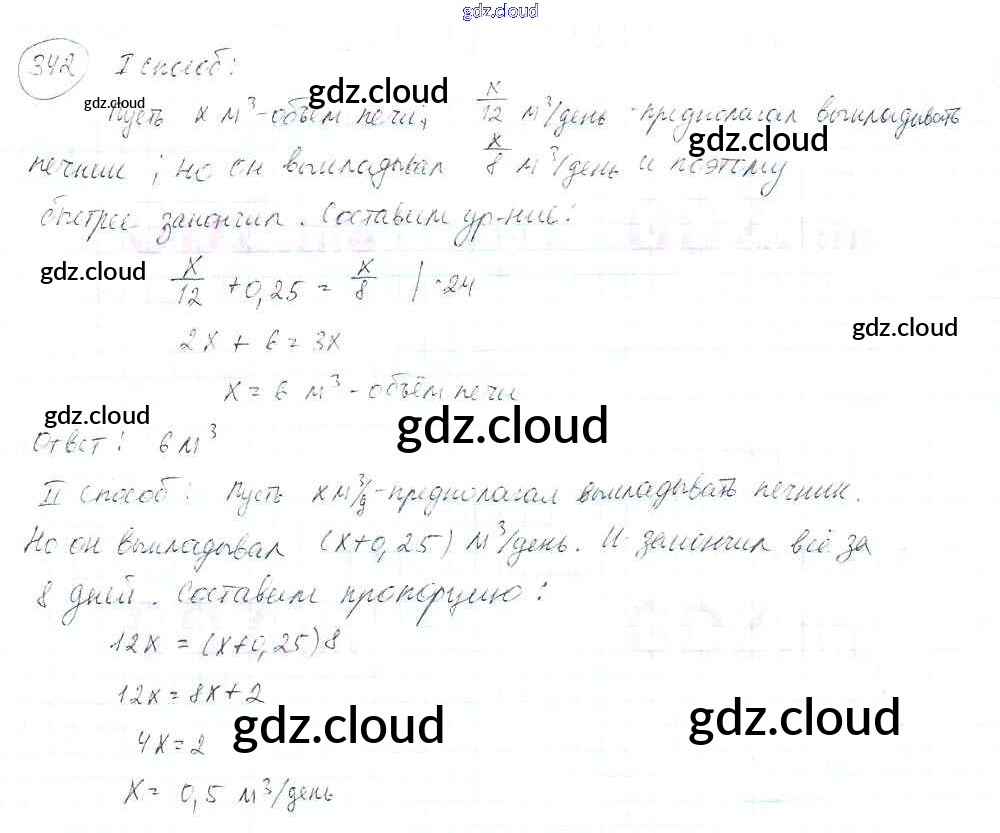 gdz.cloud
342 I способ:
gdz.cloud gdz.cloud
Пусть x м³ - объём печи, x/12 м³/день - предполагал выкладывать
gdz.cloud
печник; но он выкладывал x/8 м³/день и поэтому
быстрее закончил. Составим ур-ние:
gdz.cloud
x/12 + 0,25 = x/8 | · 24
gdz.cloud
2x + 6 = 3x
x = 6 м³ - объём печи
gdz.cloud gdz.cloud
Ответ: 6 м³
II способ: Пусть x м³/д - предполагал выкладывать печник.
Но он выкладывал (x+0,25) м³/день. И закончил всё за
8 дней. Составим пропорцию:
12x = (x+0,25)8
12x = 8x + 2
gdz.cloud gdz.cloud
4x = 2
x = 0,5 м³/день